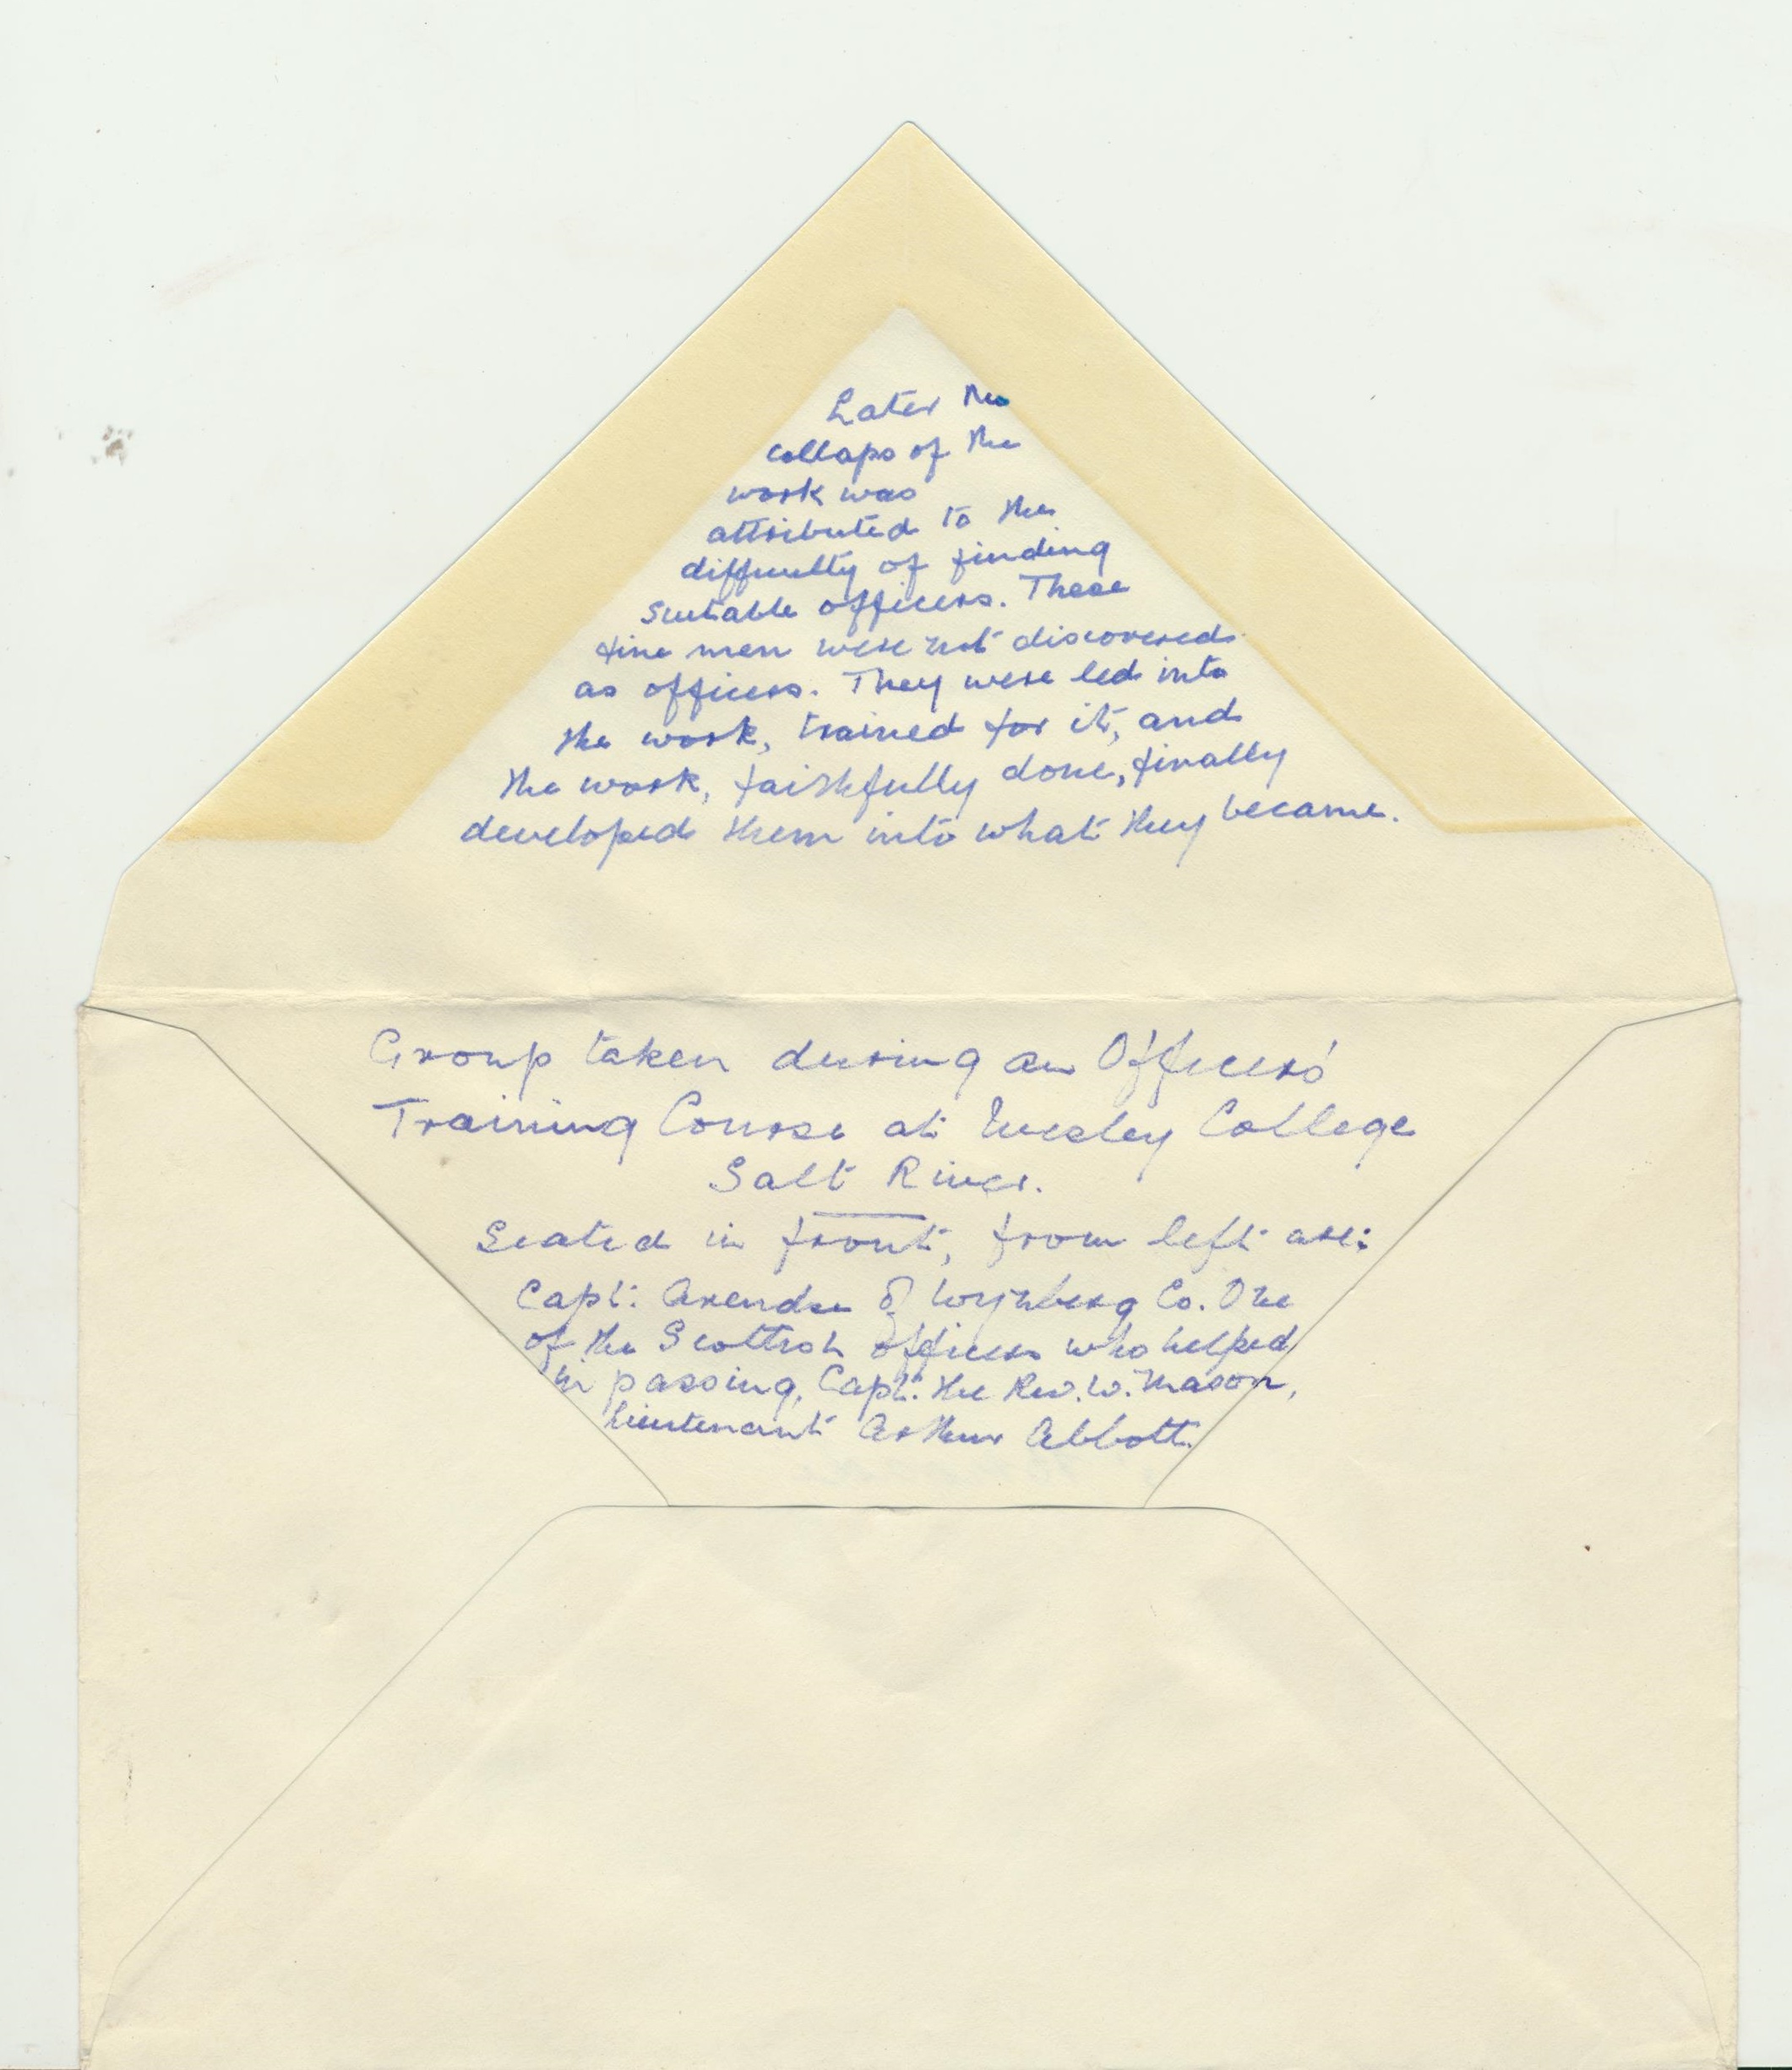 Later the
collaps of the
work was
attributed to the
difficulty of finding
suitable officers. These
fine men were not discovered
as officers. They were led into
the work, trained for it, and
the work, faithfully done, finally
developed them into what they became.
Group taken during an Officers'
Training Course at Wesley College
Salt River.
Seated in front, from left are:
Capt. Arendse of Wynberg Co. One
of the Scottish officers who helped
in passing, Capt. the Rev. W. Mason,
Lieutenant Arthur Abbott.